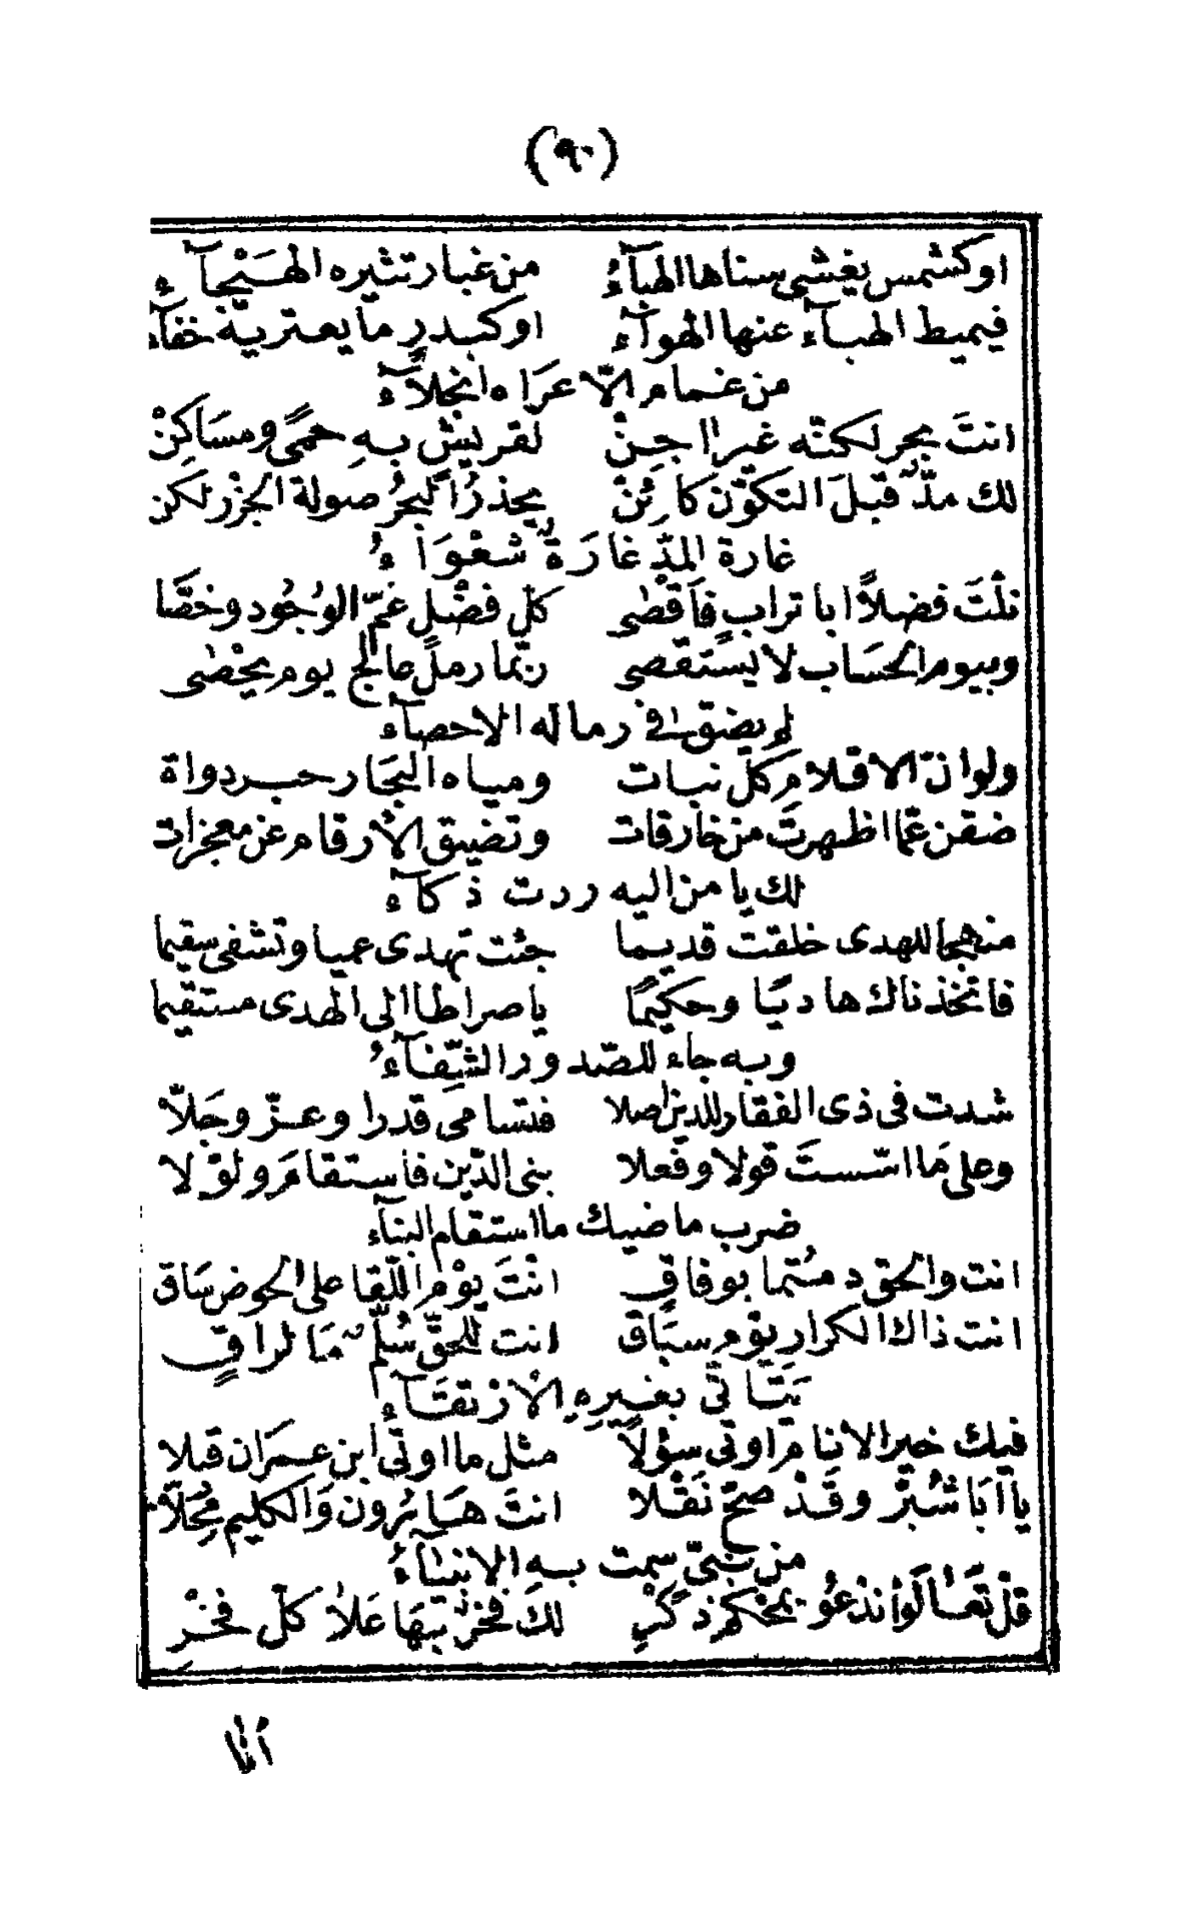 (٩٠)
او كشمس يغشى سناها الهبآءُ من غبار تثيره الهَيْجآء
فيميط الهبآء عنها الهوآء او كبدرٍ ما يعتريه خفآء
من غمام الّا عَرَاه انجلآء
انتَ بحر لكنّه غير اجنْ لقريش بهِ حمىً ومسَاكِنْ
لك مدّ قبلَ التكوّن كائنْ يحذرُ البحرُ صولة الجزر لكن
غارة المدّ غارَة شعْوَاءُ
نلتَ فضلاً ابا ترابٍ فاَقْصٰى كلّ فضْل عَمّ الوُجُود وخصَّا
وبيوم الحسَاب لا يستقصى ربّما رملُ عالج يوم يحْصٰى
لم يضق فى رماله الاحصآء
ولو انّ الاقلام كلّ نبات ومياه البحَار حبر دواة
ضقن عمّا اظهرتَ من خارقات وتضيق الأرقام عن معجزات
لك يا من اليه ردت ذكآء
منهجا للهدى خلقت قديما جئت تهدى عميا وتشفى سقيما
فاتخذناك هاديًا وحكيمًا يا صراطا الى الهدى مستقيما
وبه جاء للصّدور الشّفآءُ
شدت فى ذى الفقار للدين اصلا فتسامى قدرا وعزّ وجَلّا
وعلى مَا اسّستَ قولا وفعلا بنى الدّين فاستقامَ ولوْلا
ضرب ماضيك ما استقام البنآء
انت والحق دمتُما بوفاقٍ انْتَ يوْم اللّقا على الحوض سَاق
انت ذاك الكرار يوْم سبَاق انت للحقّ سُلّم مَا لراقٍ
يَتَأتّى بغيرِهِ الْارْتقآء
فيك خير الانام اوتى سؤلاً مثل ما اوتى ابن عمرَان قبلا
يا اَبَا شُبّرْ وقَدْ صحّ نَقْلا انتَ هَارُون وَالكليم مُحِلّا
من نبىّ سمت به الانبيآءُ
قلْ تعَالَوْا ندْعُو بمحكم ذكْرٍ لكَ فخرٌ تيهًا عَلا كلّ فخْرِ